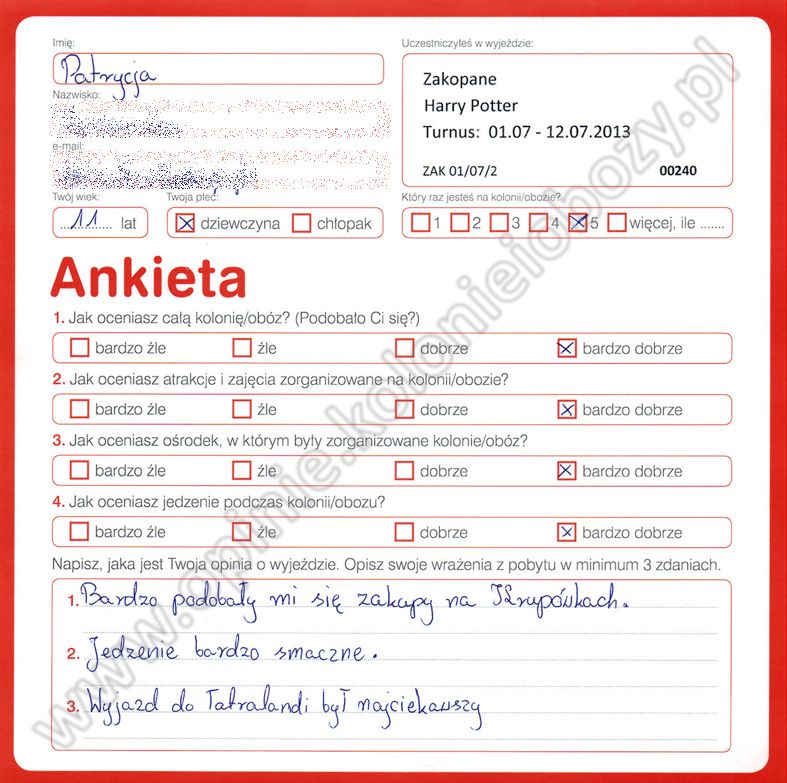 Imię:
Patrycja
Uczestniczyłeś w wyjeździe:
Zakopane
Harry Potter
Turnus: 01.07 - 12.07.2013
ZAK 01/07/2 00240
Nazwisko:
e-mail:
Twój wiek: Twoja płeć: Który raz jesteś na kolonii/obozie?
11 lat dziewczyna chłopak 1 2 3 4 5 więcej, ile .......
Ankieta
1. Jak oceniasz całą kolonię/obóz? (Podobało Ci się?)
bardzo źle źle dobrze bardzo dobrze
2. Jak oceniasz atrakcje i zajęcia zorganizowane na kolonii/obozie?
bardzo źle źle dobrze bardzo dobrze
3. Jak oceniasz ośrodek, w którym były zorganizowane kolonie/obóz?
bardzo źle źle dobrze bardzo dobrze
4. Jak oceniasz jedzenie podczas kolonii/obozu?
bardzo źle źle dobrze bardzo dobrze
Napisz, jaka jest Twoja opinia o wyjeździe. Opisz swoje wrażenia z pobytu w minimum 3 zdaniach.
1. Bardzo podobały mi się zakupy na Krupówkach.
2. Jedzenie bardzo smaczne.
3. Wyjazd do Tatralandi był najciekawszy
www.opinie.kolonieiobozy.pl